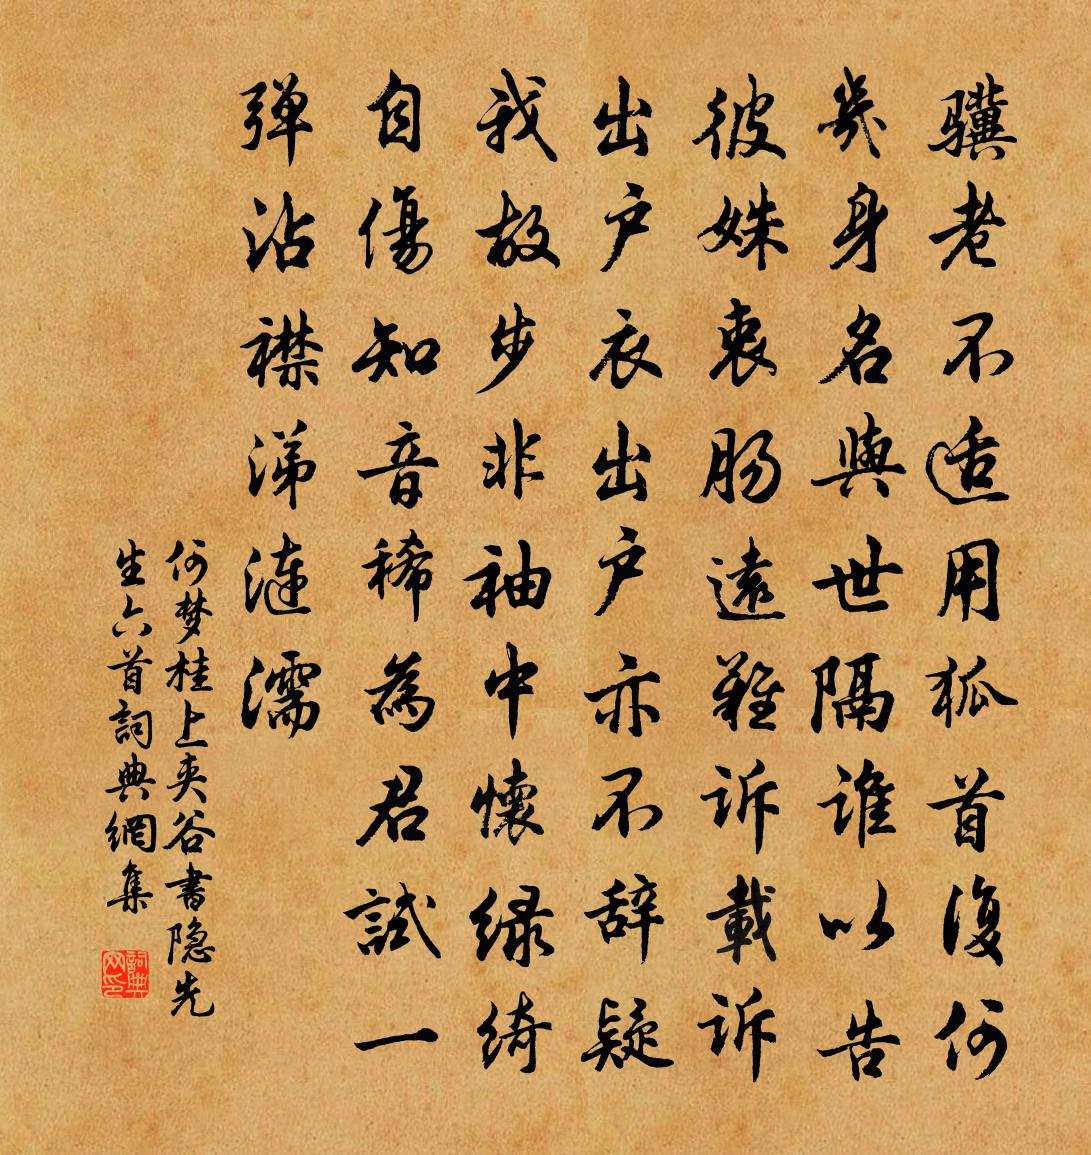 骥老不适用狐首復何
幾身名與世隔誰以告
彼姝衷肠遠難訴載訴
出户衣出户亦不辞疑
我故步非袖中懷緑绮
自傷知音稀為君試一
弹沾襟涕漣濡
何梦桂上夹谷書隐先
生六首詞典網集
詞典网印